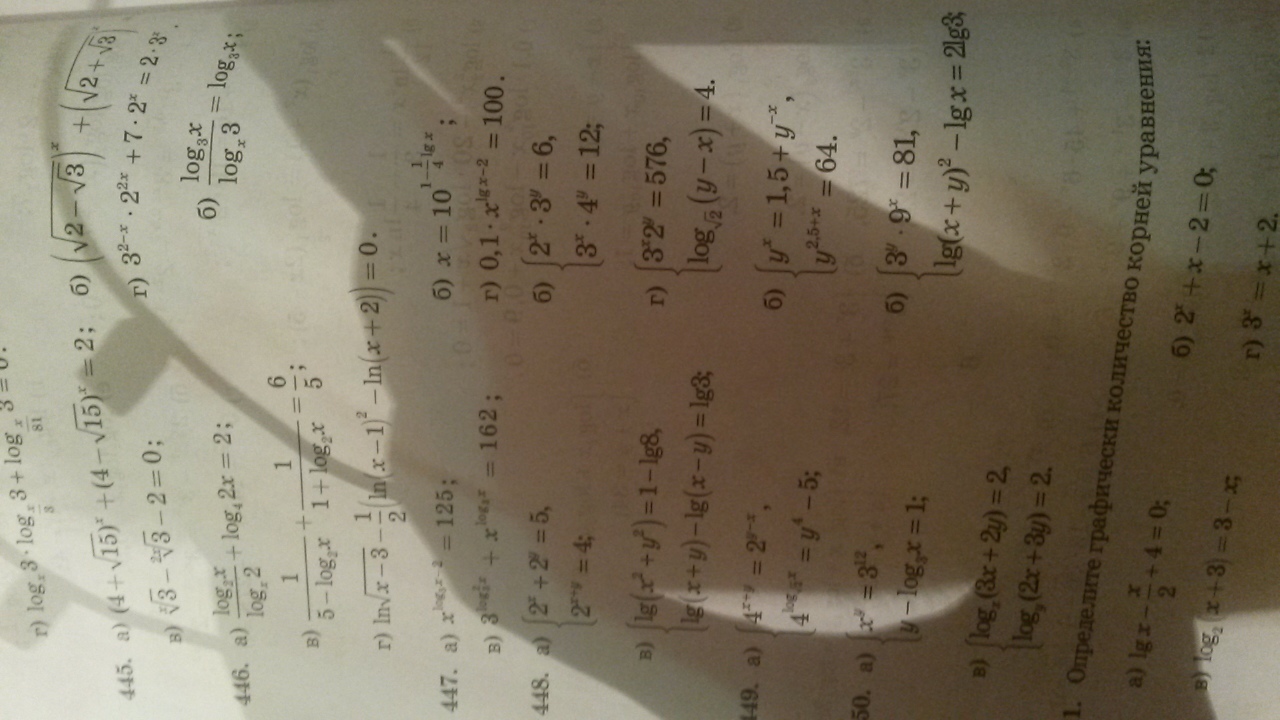 г) log_{x/3} 3 · log_x 3 + log_{x/81} 3 = 0.
445. а) (4+√15)^x + (4−√15)^x = 2; б) (√(2−√3))^x + (√(2+√3))
в) ^x√3 − ^{2x}√3 − 2 = 0; г) 3^{2−x} · 2^{2x} + 7 · 2^x = 2 · 3^x.
446. а) log_2 x / log_x 2 + log_4 2x = 2; б) log_3 x / log_x 3 = log_3 x;
в) 1/(5−log_2 x) + 1/(1+log_2 x) = 6/5;
г) ln√(x−3) − 1/2 (ln(x−1)^2 − ln(x+2)) = 0.
447. а) x^{log_5 x−2} = 125; б) x = 10^{1−1/4 lg x};
в) 3^{log_3^2 x} + x^{log_3 x} = 162; г) 0,1 · x^{lg x−2} = 100.
448. а) {2^x + 2^y = 5, б) {2^x · 3^y = 6,
2^{x+y} = 4; 3^x · 4^y = 12;
в) {lg(x^2+y^2) = 1−lg8, г) {3^x 2^y = 576,
lg(x+y)−lg(x−y) = lg3; log_{√2}(y−x) = 4.
449. а) {4^{x+y} = 2^{y−x}, б) {y^x = 1,5 + y^{−x},
= y^4 − 5; y^{2,5+x} = 64.
50. а) {x^y = 3^{12}, б) {3^y · 9^x = 81,
y − log_3 x = 1; lg(x+y)^2 − lg x = 2lg3;
в) {log_x(3x+2y) = 2,
log_y(2x+3y) = 2.
1. Определите графически количество корней уравнения:
а) lg x − x/2 + 4 = 0; б) 2^x + x − 2 = 0;
в) log_2(x+3) = 3−x; г) 3^x = x + 2.